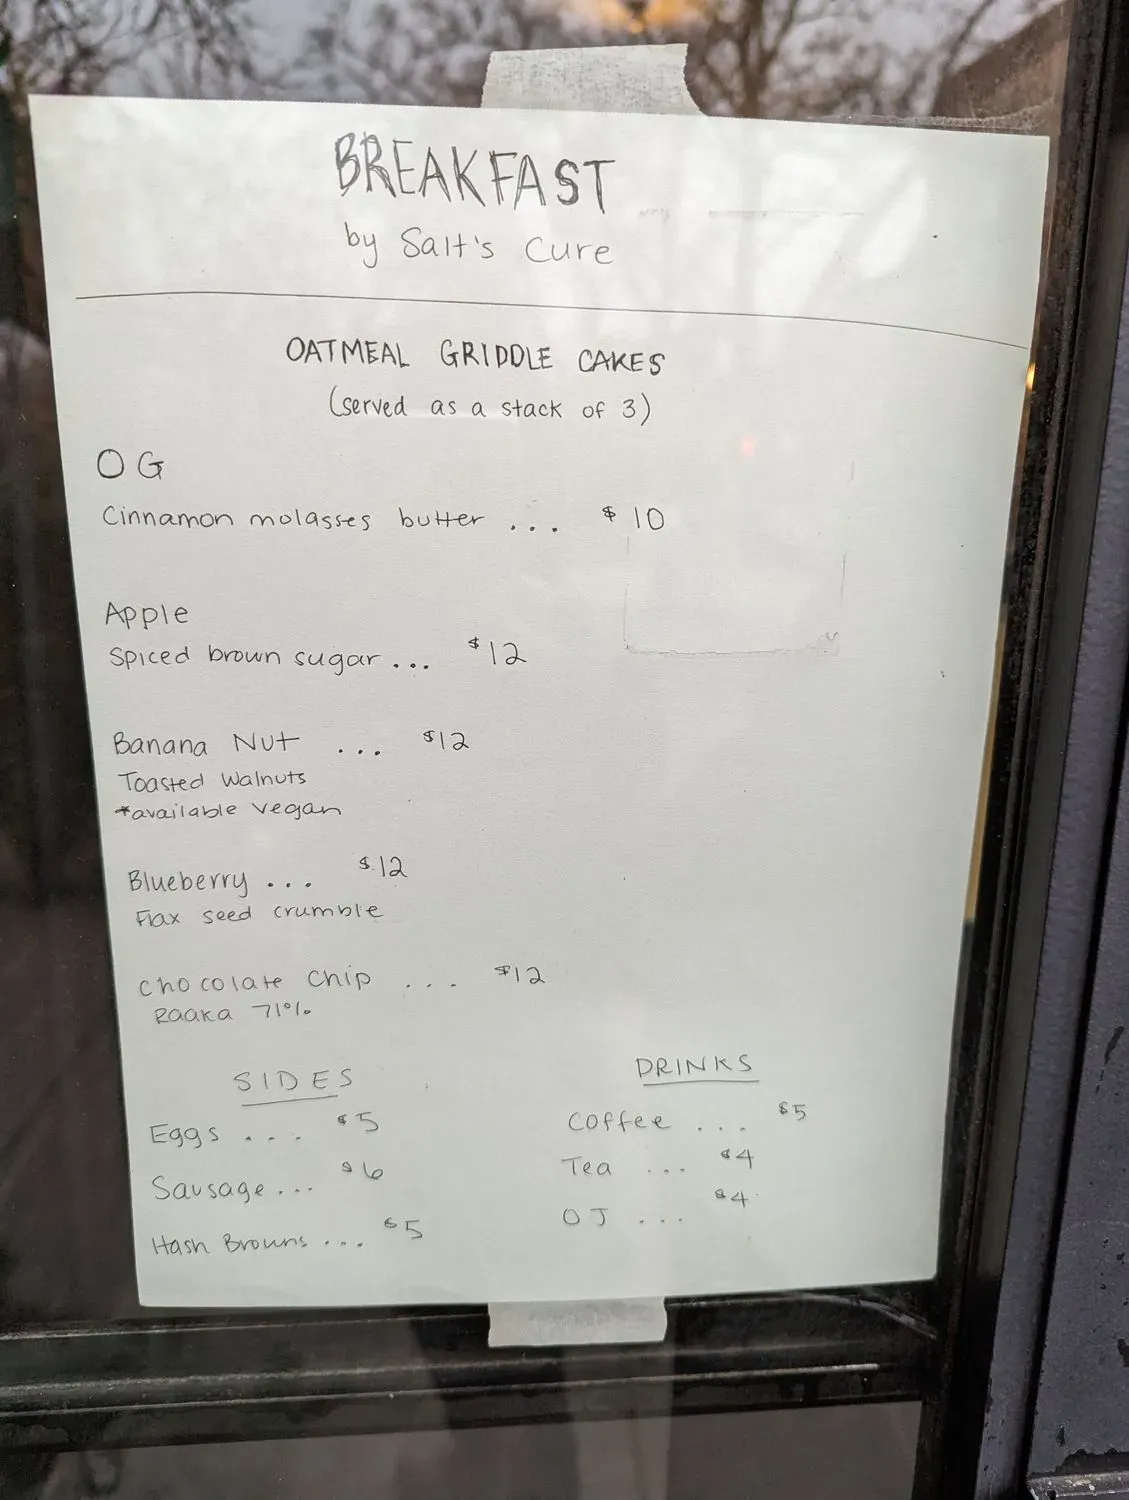 BREAKFAST
by Salt's Cure
OATMEAL GRIDDLE CAKES
(served as a stack of 3)
OG
Cinnamon molasses butter ... $10
Apple
Spiced brown sugar ... $12
Banana Nut ... $12
Toasted Walnuts
*available vegan
Blueberry ... $12
Flax seed crumble
Chocolate Chip ... $12
Raaka 71%
SIDES
Eggs ... $5
Sausage ... $6
Hash Browns ... $5
DRINKS
Coffee ... $5
Tea ... $4
OJ ... $4